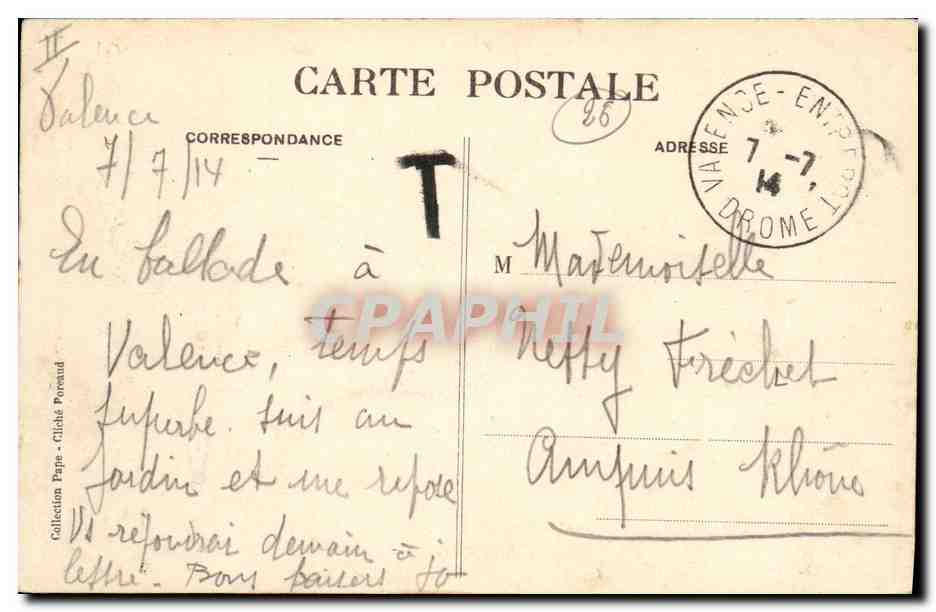 II
CARTE POSTALE
Valence
7/7/14
CORRESPONDANCE
T
26
ADRESSE
VALENCE-ENTREPOT
7 -7
14
DROME
En ballade à
Valence, temps
superbe. suis au
jardin et me repose
Vs réjoindrai demain à
lettre. Bons baisers Jo
M Mademoiselle
Netty Fréchet
Ampuis Rhône
CPAPHIL
Collection Pape - Cliché Poreaud